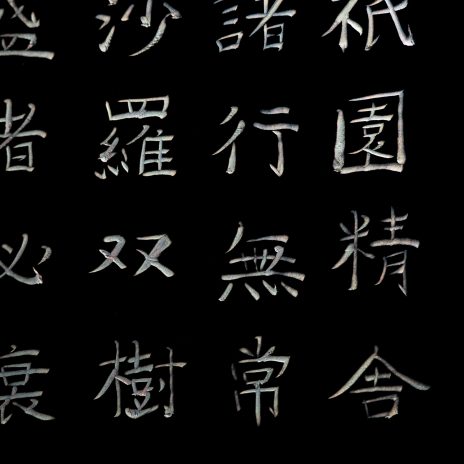 祇園精舎
諸行無常
沙羅双樹
盛者必衰